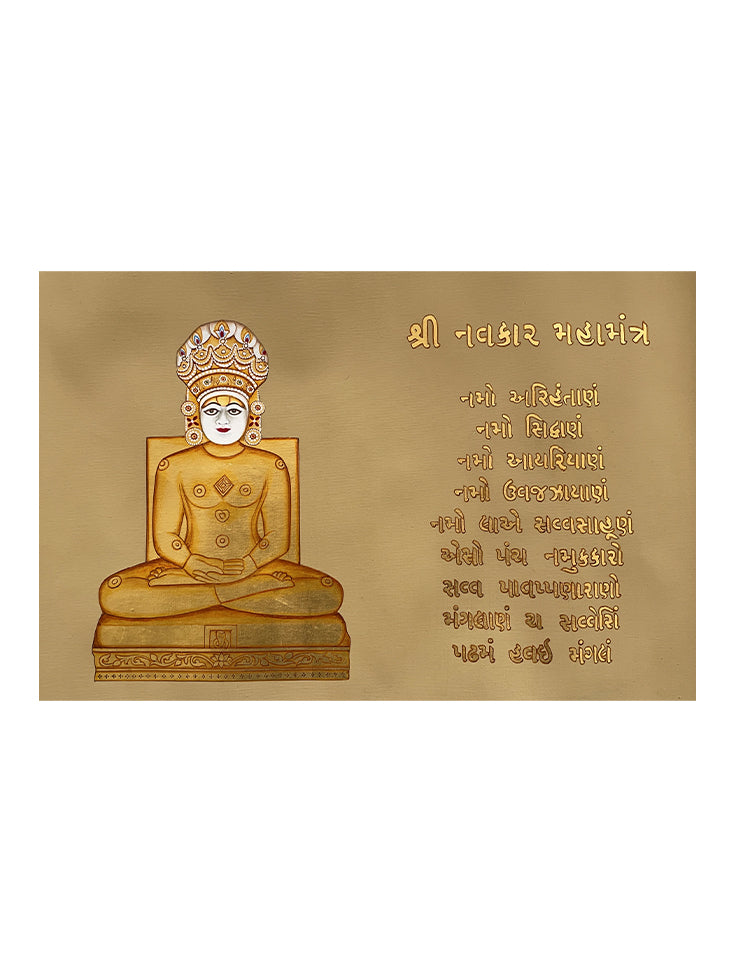 શ્રી નવકાર મહામંત્ર
નમો અરિહંતાણં
નમો સિદ્ધાણં
નમો આયરિયાણં
નમો ઉવજઝાયાણં
નમો લોએ સવ્વસાહૂણં
એસો પંચ નમુક્કારો
સવ્વ પાવપ્પણાસણો
મંગલાણં ચ સવ્વેસિં
પઢમં હવઇ મંગલં